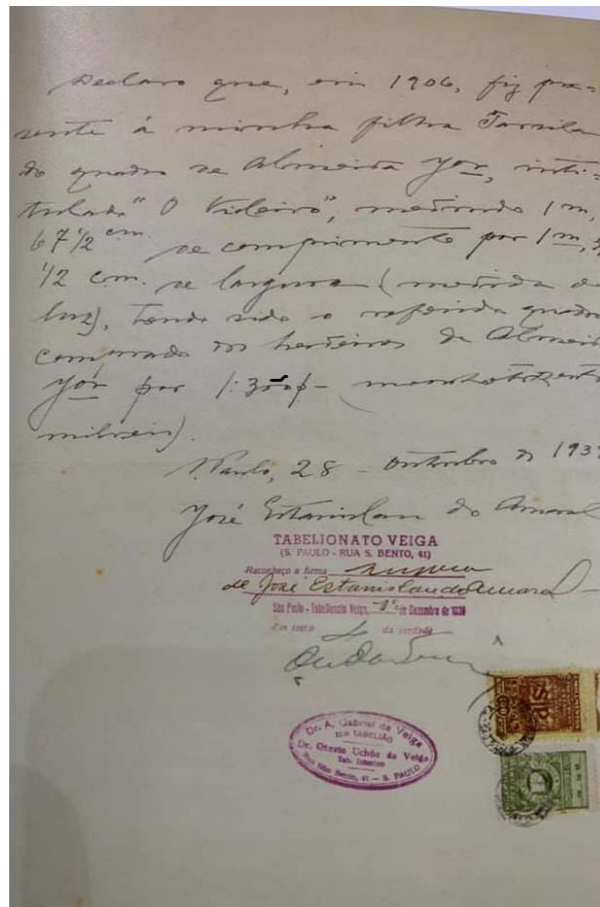 Declaro que, em 1906, fiz pre-
sente á minha filha Tarsila
do quadro de Almeida Jor, inti-
tulado "O Violeiro", medindo 1 m,
67 1/2 cm. de comprimento por 1 m,
1/2 cm. de largura (medida da
luz), tendo sido o referido quadro
comprado dos herdeiros de Almeida
Jor por
milreis).
S. Paulo, 28 - outubro de 193
José Estanislau do Amaral
TABELIONATO VEIGA
(S. PAULO - RUA S. BENTO, 41)
Reconheço a firma supra
de José Estanislau do Amaral
São Paulo - Tabelionato Veiga, 1º de Dezembro de 1939
Em testo da verdade
Dr. A. Gabriel da Veiga
11o TABELIÃO
Dr. Otavio Uchôa da Veiga
Tab. Interino
Rua São Bento, 41 - S. PAULO